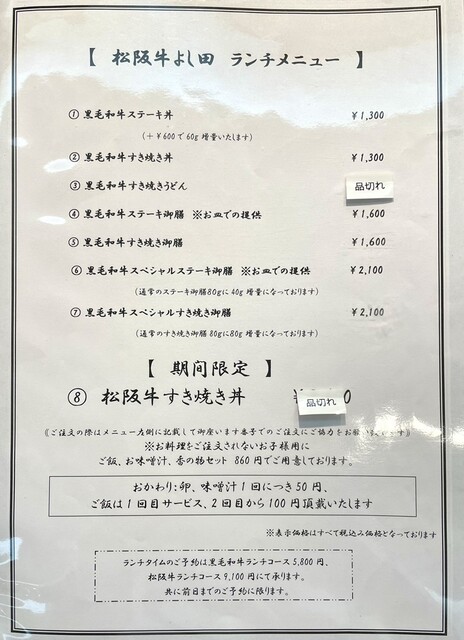 【 松阪牛よし田 ランチメニュー 】
① 黒毛和牛ステーキ丼 ¥1,300
(＋¥600で60g増量いたします)
② 黒毛和牛すき焼き丼 ¥1,300
③ 黒毛和牛すき焼きうどん 品切れ
④ 黒毛和牛ステーキ御膳 ※お皿での提供 ¥1,600
⑤ 黒毛和牛すき焼き御膳 ¥1,600
⑥ 黒毛和牛スペシャルステーキ御膳 ※お皿での提供 ¥2,100
(通常のステーキ御膳80gに40g増量になっております)
⑦ 黒毛和牛スペシャルすき焼き御膳 ¥2,100
(通常のすき焼き御膳80gに80g増量になっております)
【 期間限定 】
⑧ 松阪牛すき焼き丼 品切れ
《ご注文の際はメニュー左側に記載して御座います番号でのご注文にご協力をお願いします》
※お料理をご注文されないお子様用に
ご飯、お味噌汁、香の物セット 860円でご用意しております。
おかわり:卵、味噌汁1回につき50円、
ご飯は1回目サービス、2回目から100円頂戴いたします
※表示価格はすべて税込み価格となっております
ランチタイムのご予約は黒毛和牛ランチコース5,800円、
松阪牛ランチコース9,100円にて承ります。
共に前日までのご予約に限ります。